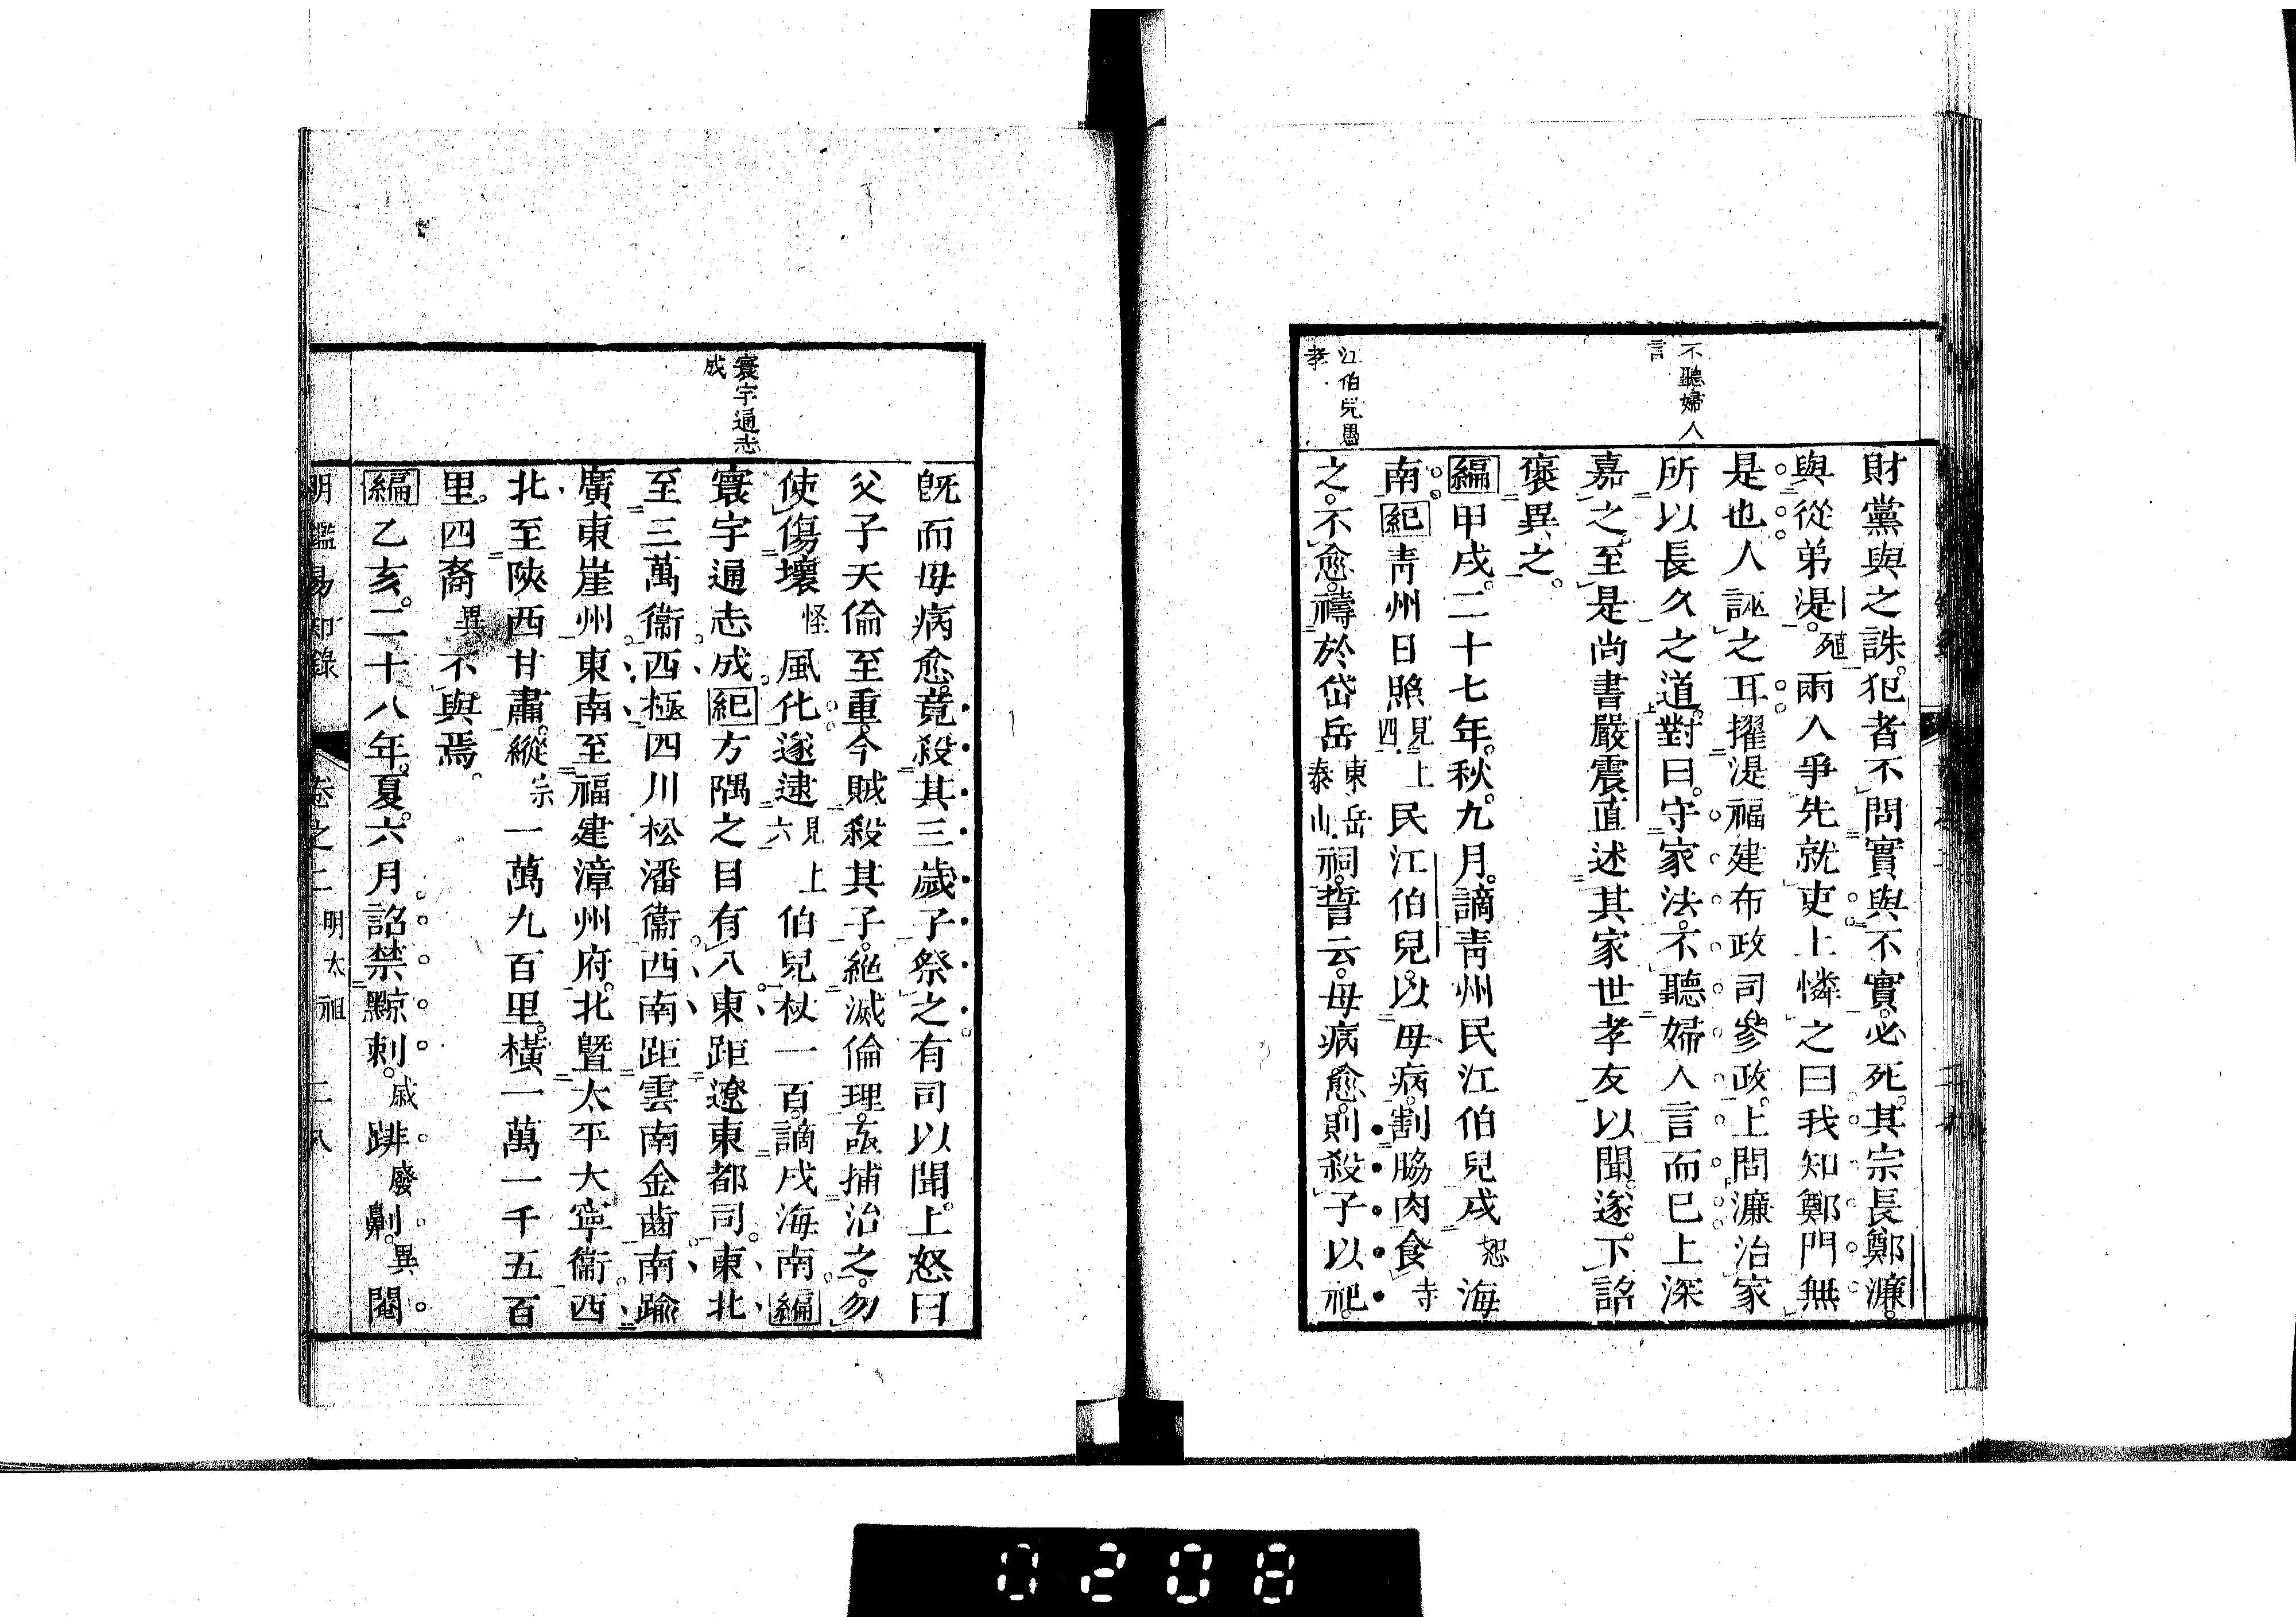 不聽婦人
言
江伯兒愚
孝
財黨與之誅犯者不問實與不實必死其宗長鄭濂
與從弟湜殖兩人爭先就吏上憐之曰我知鄭門無
是也人誣之耳擢湜福建布政司參政上問濂治家
所以長久之道對曰守家法不聽婦人言而已上深
嘉之至是尚書嚴震直述其家世孝友以聞遂下詔
褒異之
編甲戌二十七年秋九月謫青州民江伯兒戍恕海
南紀青州日照見上四民江伯兒以母病割脇肉食寺
之不愈禱於岱岳東岳泰山祠誓云母病愈則殺子以祀
寰宇通志
成
既而母病愈竟殺其三歲子祭之有司以聞上怒曰
父子天倫至重今賊殺其子絶滅倫理亟捕治之勿
使傷壞怪風化遂逮見上六伯兒杖一百謫戍海南編
寰宇通志成紀方隅之目有八東距遼東都司東北
至三萬衞西極四川松潘衞西南距雲南金齒南踰
廣東崖州東南至福建漳州府北曁太平大寧衞西
北至陜西甘肅縱宗一萬九百里橫一萬一千五百
里四裔異不與焉
編乙亥二十八年夏六月詔禁黥刺戚跸廢劓異閹
明鑑易知錄 卷之二 明太祖 二八
0208